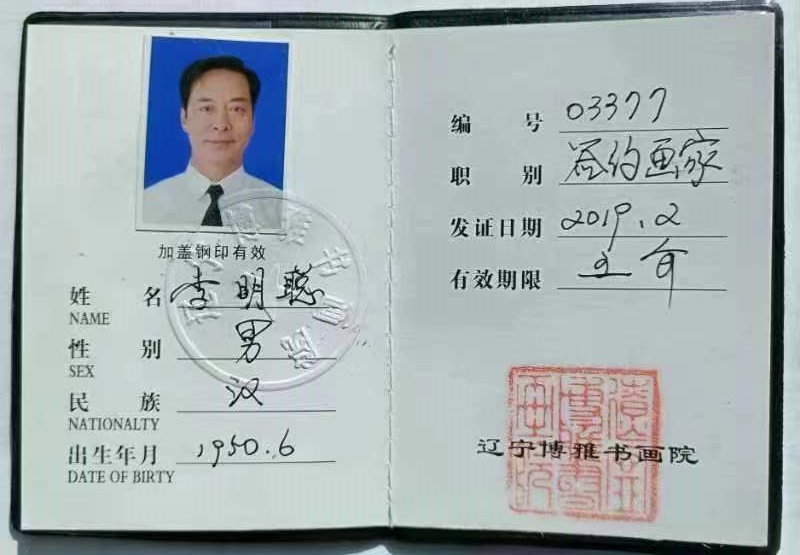 加盖钢印有效
姓 名 李明聪
NAME
性 别 男
SEX
民 族 汉
NATIONALTY
出生年月 1950.6
DATE OF BIRTY
编 号 03377
职 别 签约画家
发证日期 2019.2
有效期限
辽宁博雅书画院